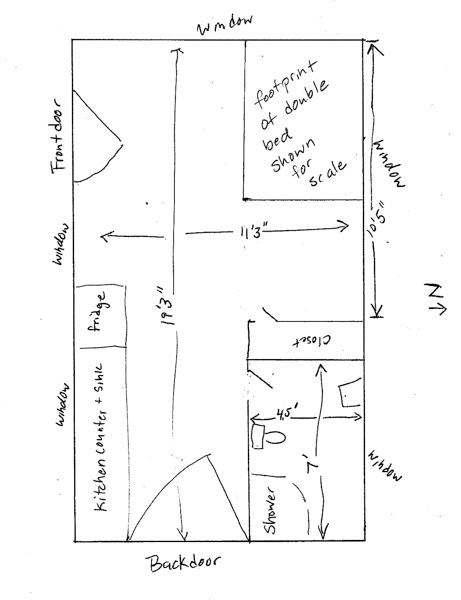 window
Front door
footprint
of double
bed
shown
for
scale
window
11'3"
10'5"
19'3"
window
fridge
N
Closet
window
Kitchen counter + sink
4.5'
7'
window
Shower
Backdoor